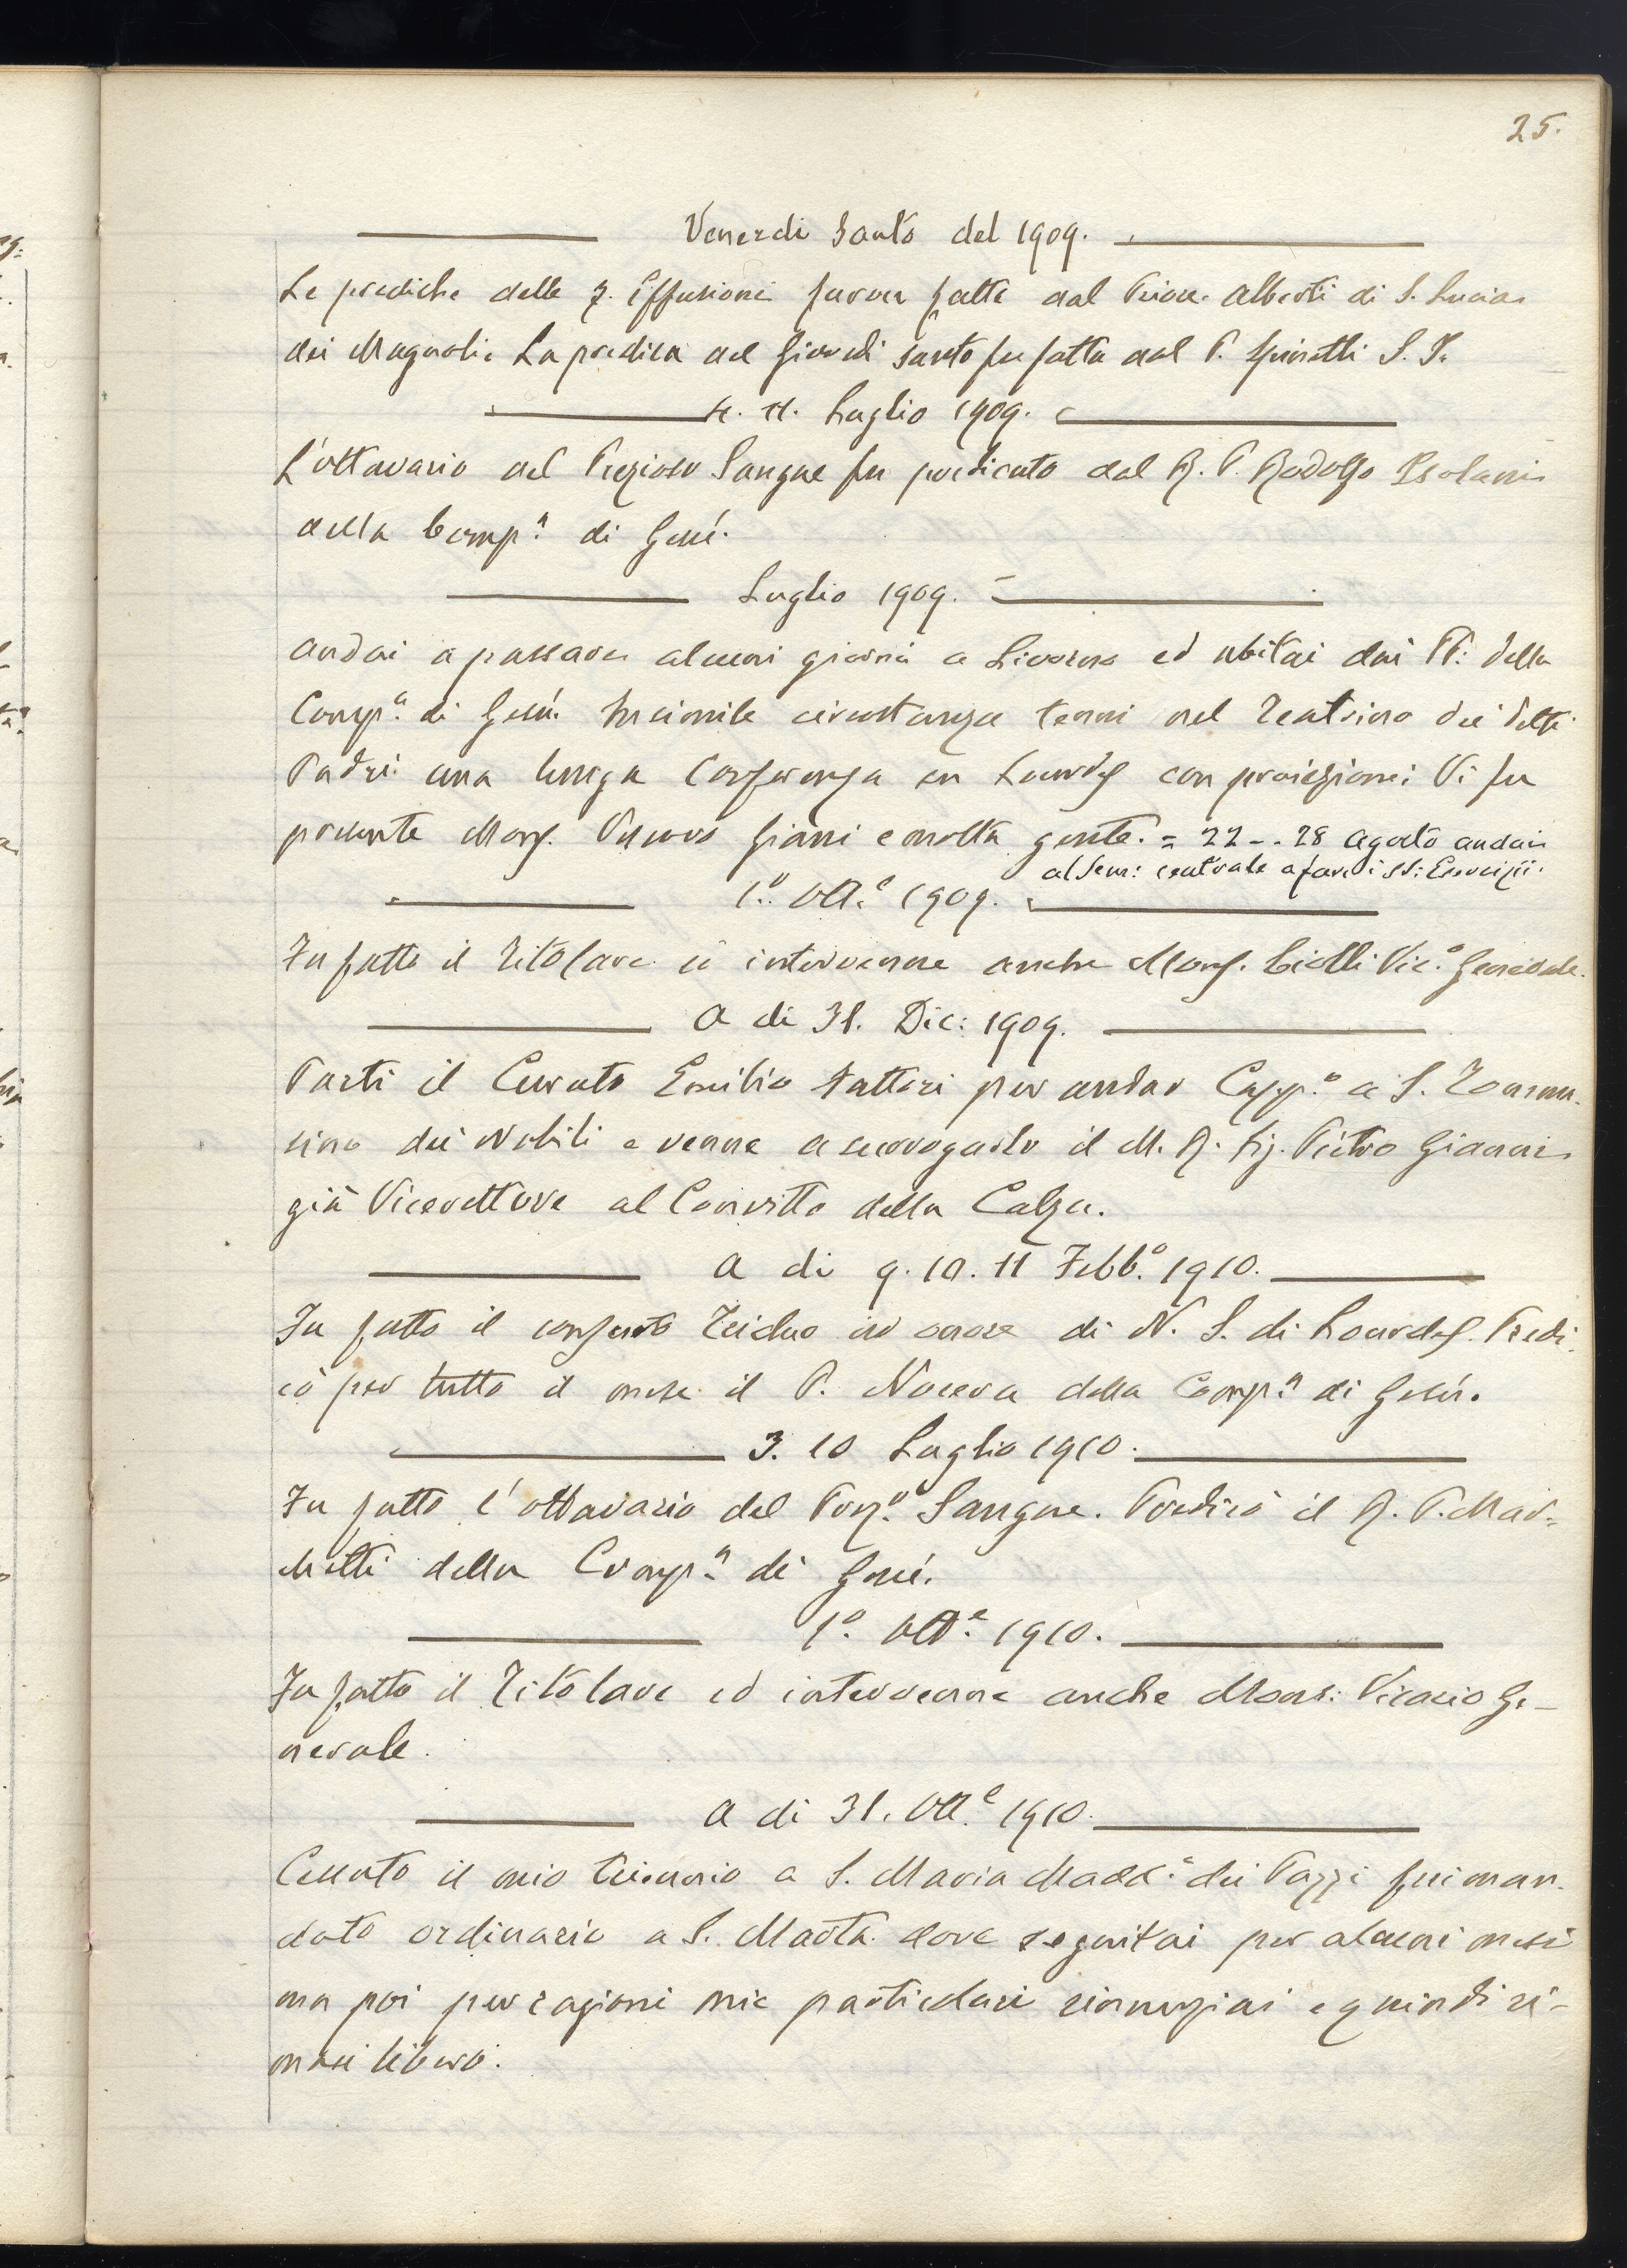 25.
Venerdi Santo del 1909.
Le prediche delle 7. Effusioni furon fatte dal Prior. Alberti di S. Lucia
dei Magnoli. La predica del Giovedi Santo fu fatta dal P. Spinetti S. I.
4. 11. Luglio 1909.
L'ottavario del Prezioso Sangue fu predicato dal R. P. Rodolfo Isolani
della Comp.a di Gesú.
Luglio 1909.
Andai a passare alcuni giorni a Livorno ed abitai dai PP. della
Comp.a di Gesú. In simile circostanza tenni nel Teatrino dei detti
Padri una lunga Conferenza su Lourdes con proiezioni. Vi fu
presente Mons. Vescovo Giani e molta gente. = 22 -.. 28 Agosto andai
al Sem: centrale a fare i SS: Esercizii.
1.o Ott.e 1909.
Fu fatto il Titolare ci intervenne anche Mons. Ciolli Vic.o Generale.
A di 31. Dic: 1909.
Parti il Curato Emilio Fattori per andar Capp.o a S. Tomma-
sino dei Nobili e venne a surrogarlo il M. R. Sig. Pietro Gianni
già Vicerettore al Convitto della Calza.
A di 9. 10. 11 Febb.o 1910.
Fu fatto il consueto Triduo in onore di N. S. di Lourdes. Predi-
cò per tutto il mese il P. Nocera della Comp.a di Gesú.
3. 10 Luglio 1910.
Fu fatto l'ottavario del Prez.o Sangue. Predicò il R. P. Mar-
chetti della Comp.a di Gesú.
1.o Ott.e 1910.
Fu fatto il Titolare ed intervenne anche Mons: Vicario Ge-
nerale.
A di 31. Ott.e 1910.
Cessato il mio triennio a S. Maria Madd.a dei Pazzi fui man-
dato ordinario a S. Marta dove seguitai per alcuni mesi
ma poi per ragioni mie particolari rinunziai e quindi ri-
masi libero.